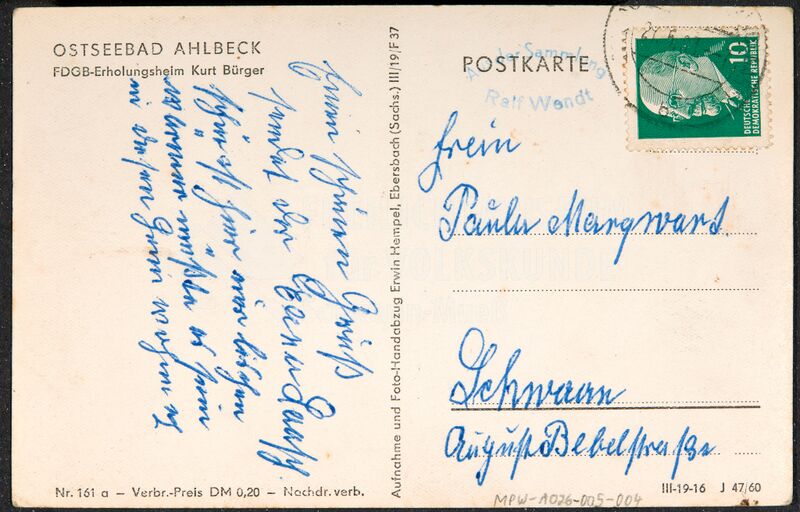 OSTSEEBAD AHLBECK
FDGB-Erholungsheim Kurt Bürger
Gruß
sendet dir
schön ist hier
wärmer müßte es sein
in diesem Heim wohnen
Nr. 161 a – Verbr.-Preis DM 0,20 – Nachdr. verb.
Aufnahme und Foto-Handabzug Erwin Hempel, Ebersbach (Sachs.) III/19/F 37
POSTKARTE
Aus der Sammlung
Ralf Wendt
10
DEUTSCHE
DEMOKRATISCHE REPUBLIK
Frein
Paula Margwart.
Schwaan
August Bebelstraße
III-19-16 J 47/60
MPW-A026-005-004